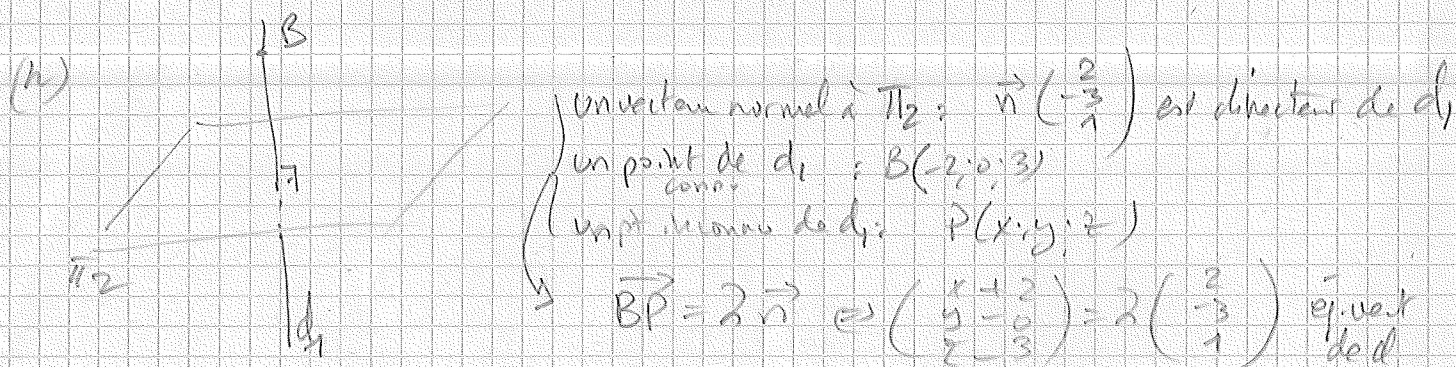 B
(h)
un vecteur normal à π2 : n⃗ (2 -3 1) est directeur de d1
un point de d1 : B(-2;0;3)
connu
un pt inconnu de d1 : P(x;y;z)
π2
d1
BP⃗ = 2 n⃗ ⇔ (x+2 y-0 z-3) = 2 (2 -3 1) éq. vect
de d